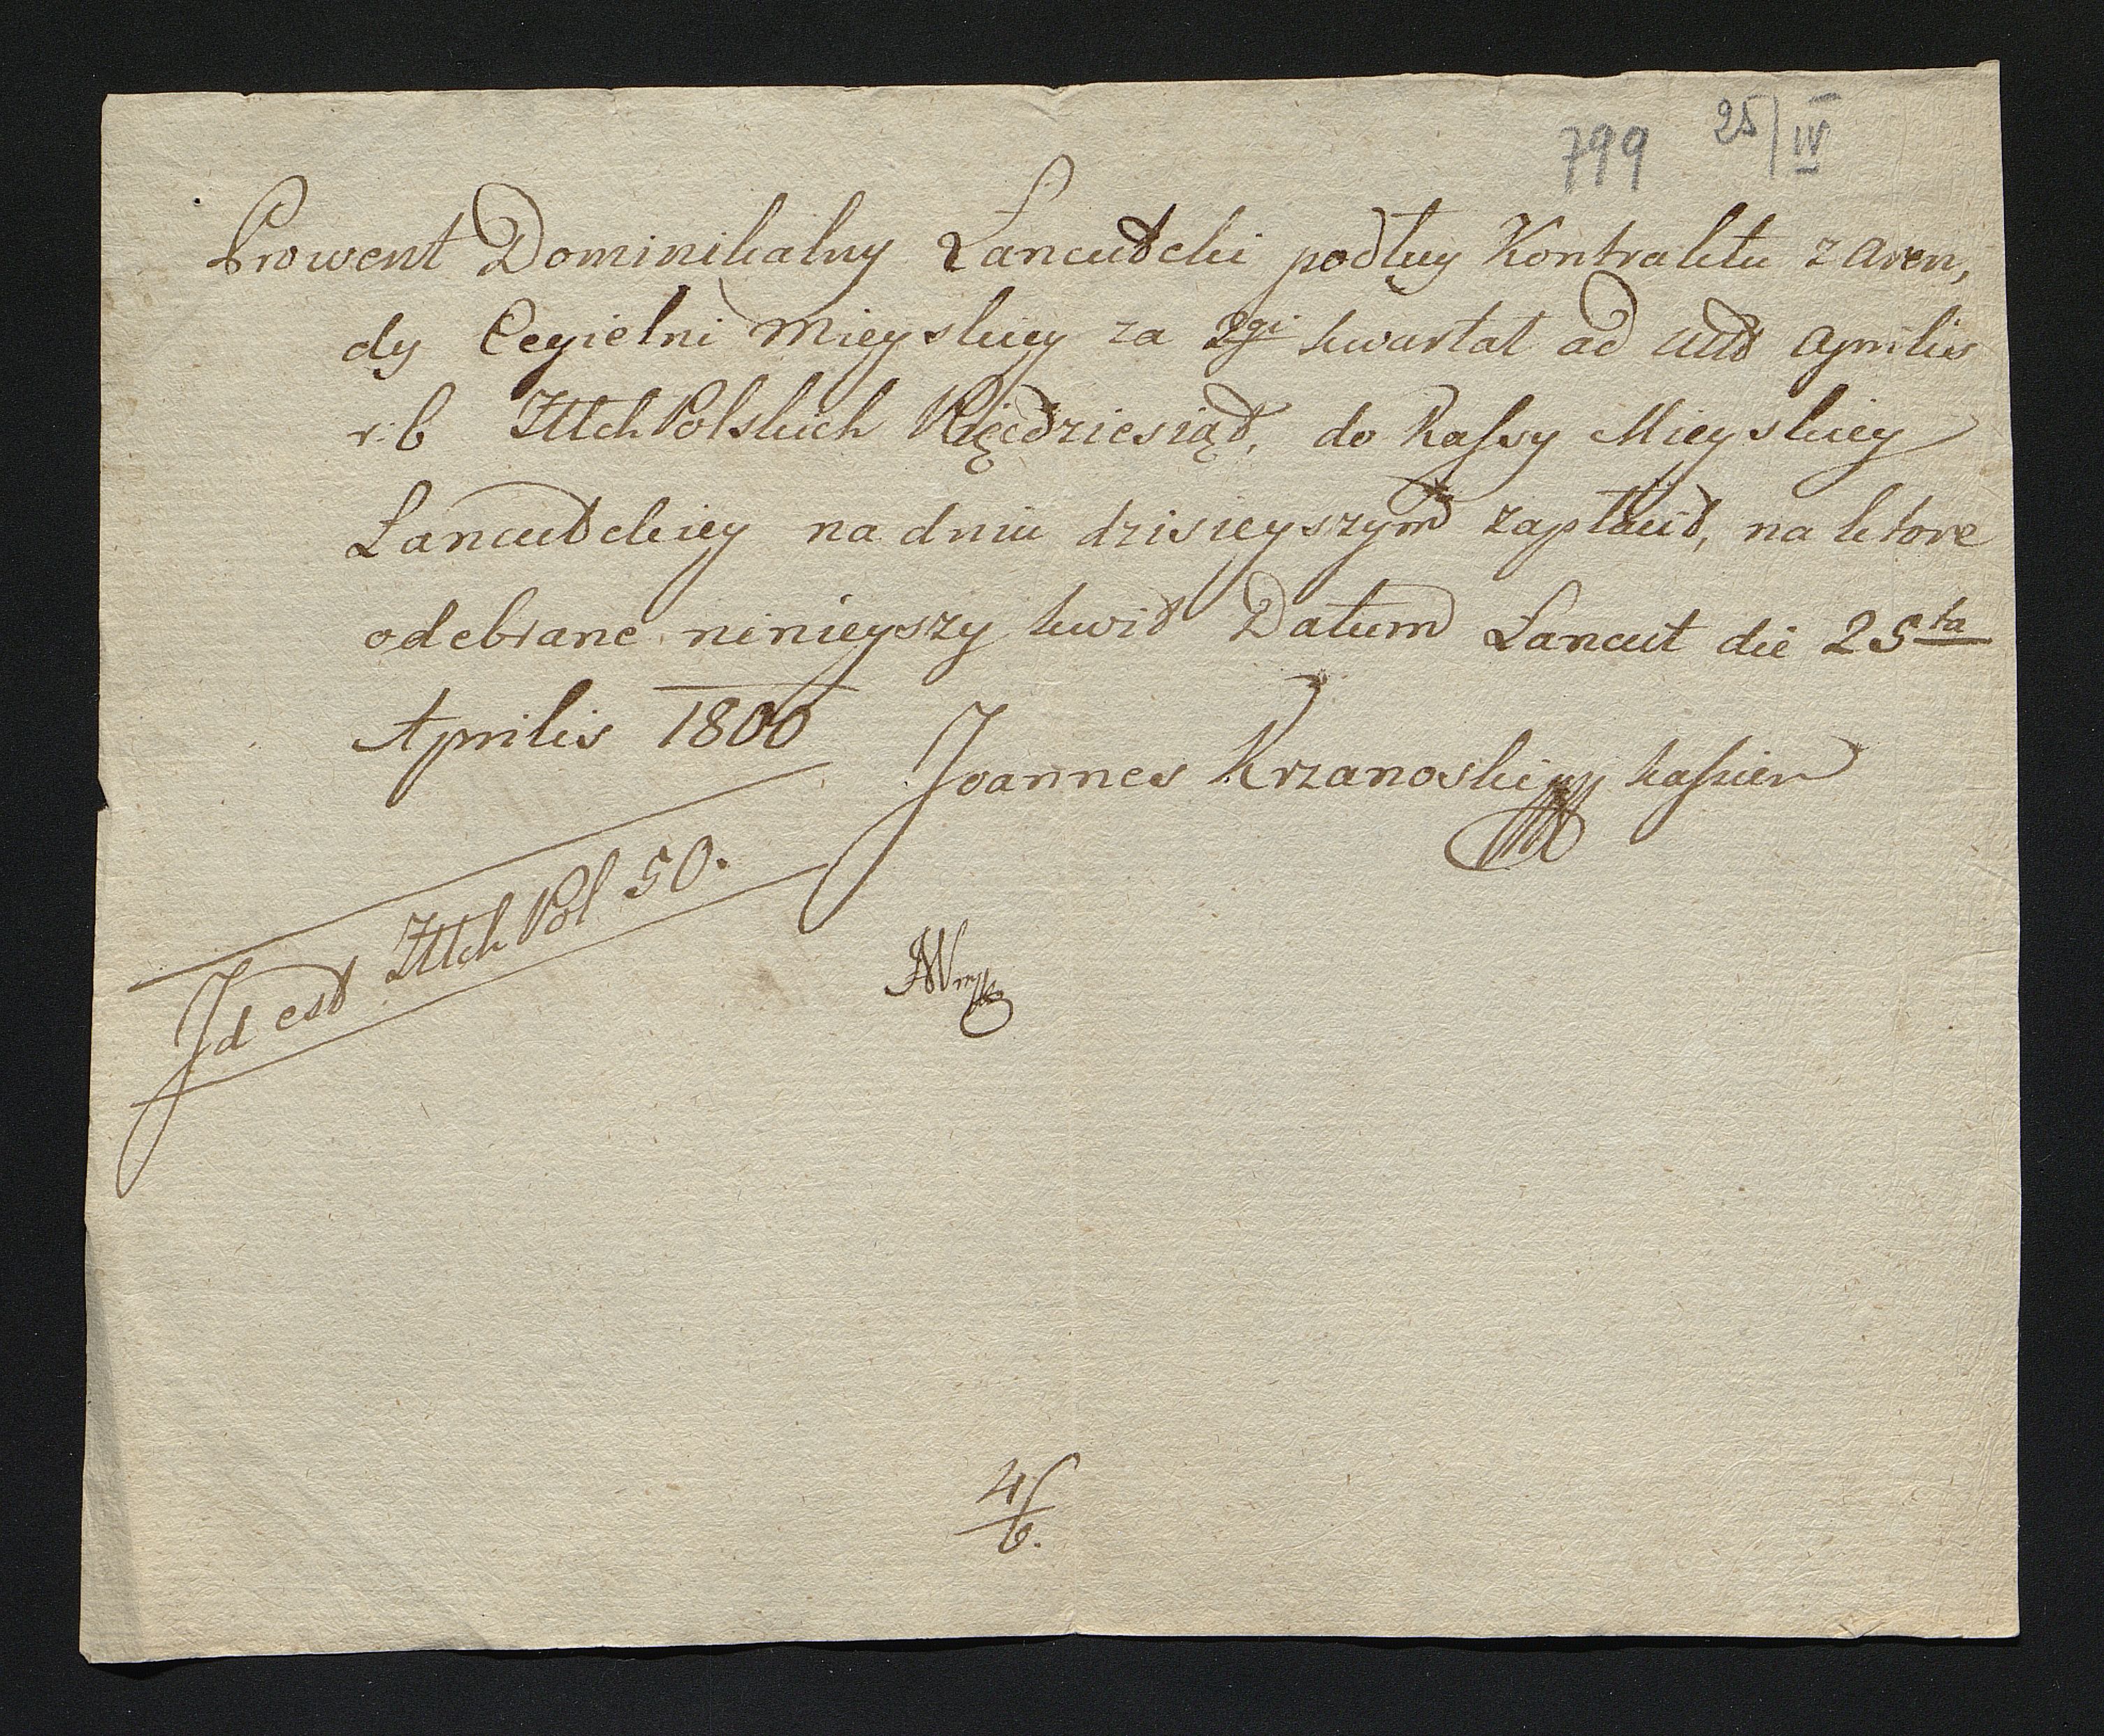 799 25/IV
Prowent Dominikalny Łancudzki podług Kontraktu z aren,
dy Cegielni Mieyskiey za 2gi kwartał ad ult Aprilis
r. b Złłch Polskich Pięćdziesiąt, do Kassy Mieyskiey
Lancudzkiey na dniu dzisieyszym zapłacił, na ktore
odebrane ninieyszy kwit Datum Lancut die 25ta
Aprilis 1800
Joannes Krzanoski kassier
Id est Złłch Pol 50.
4/6.